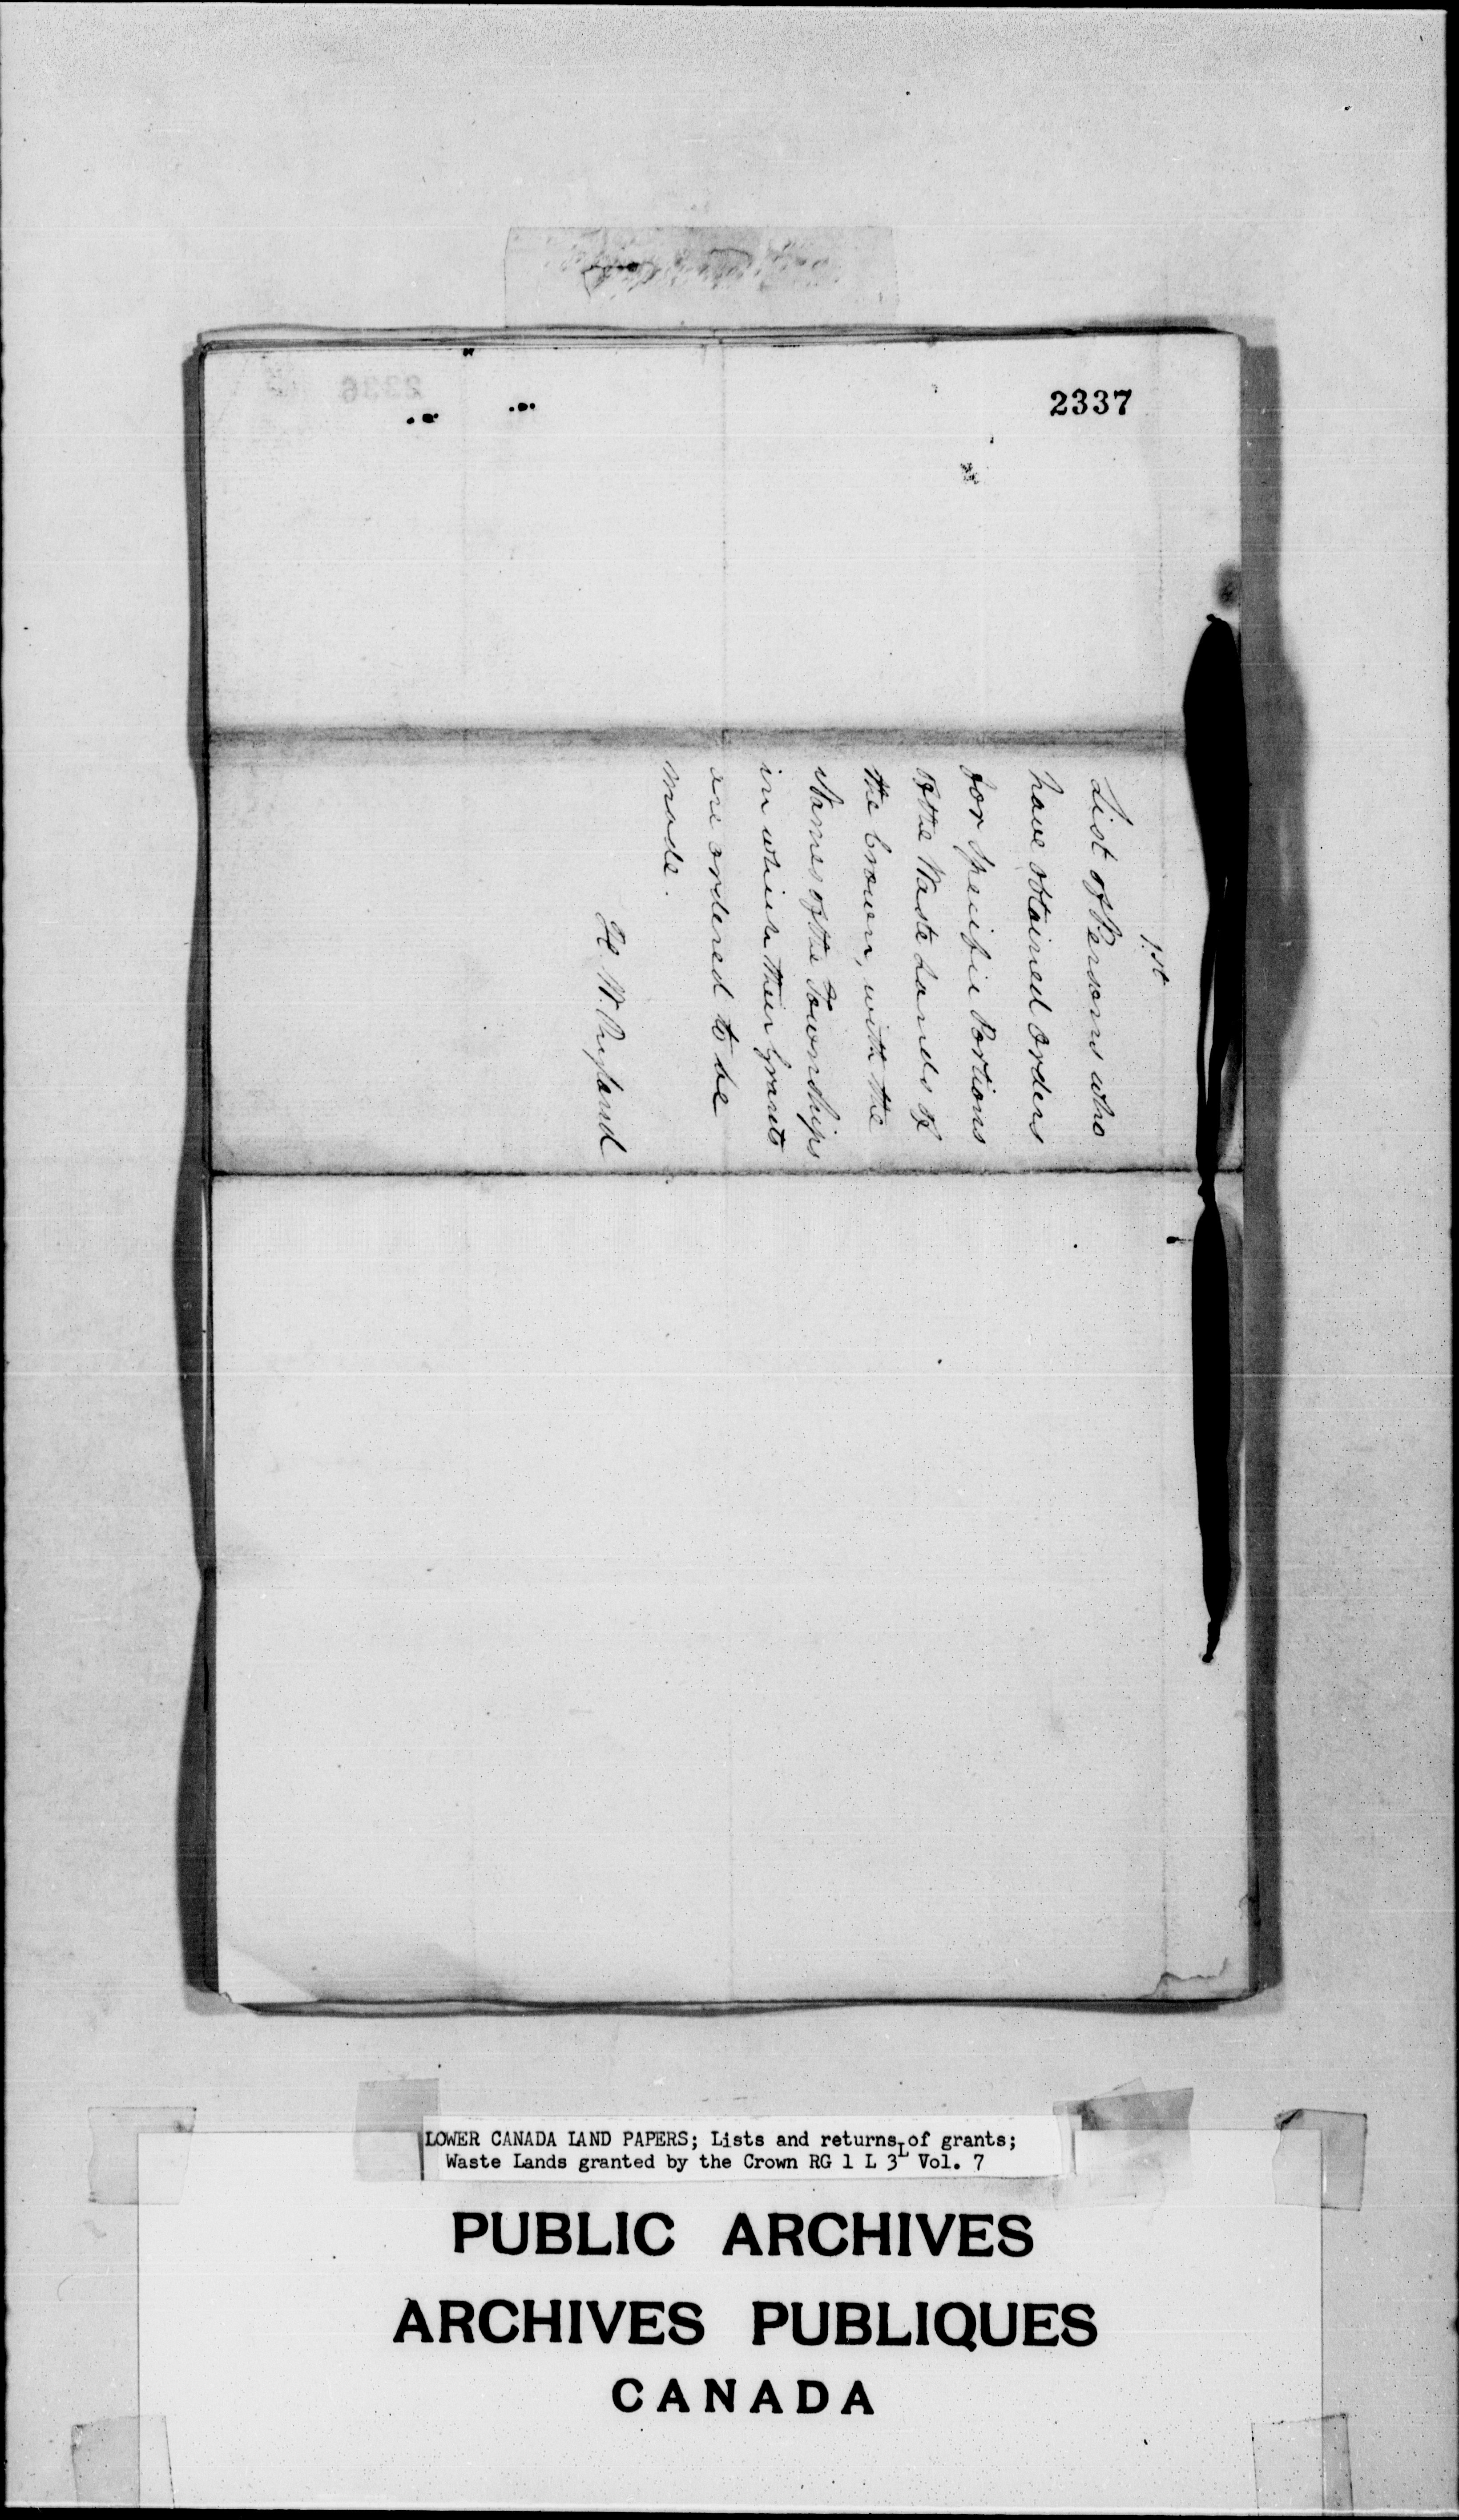 2337
1st
List of Persons who
have obtained Orders
for specific Portions
of the Waste Lands of
the Crown, with the
Names of the Townships
in which their Grants
are ordered to be
made.
H. W. Ryland
2336
LOWER CANADA LAND PAPERS; Lists and returns of grants;
Waste Lands granted by the Crown RG 1 L 3L Vol. 7
PUBLIC ARCHIVES
ARCHIVES PUBLIQUES
CANADA